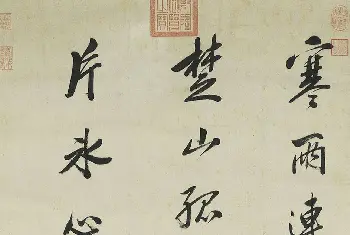 寒雨連
楚山孤
片冰心